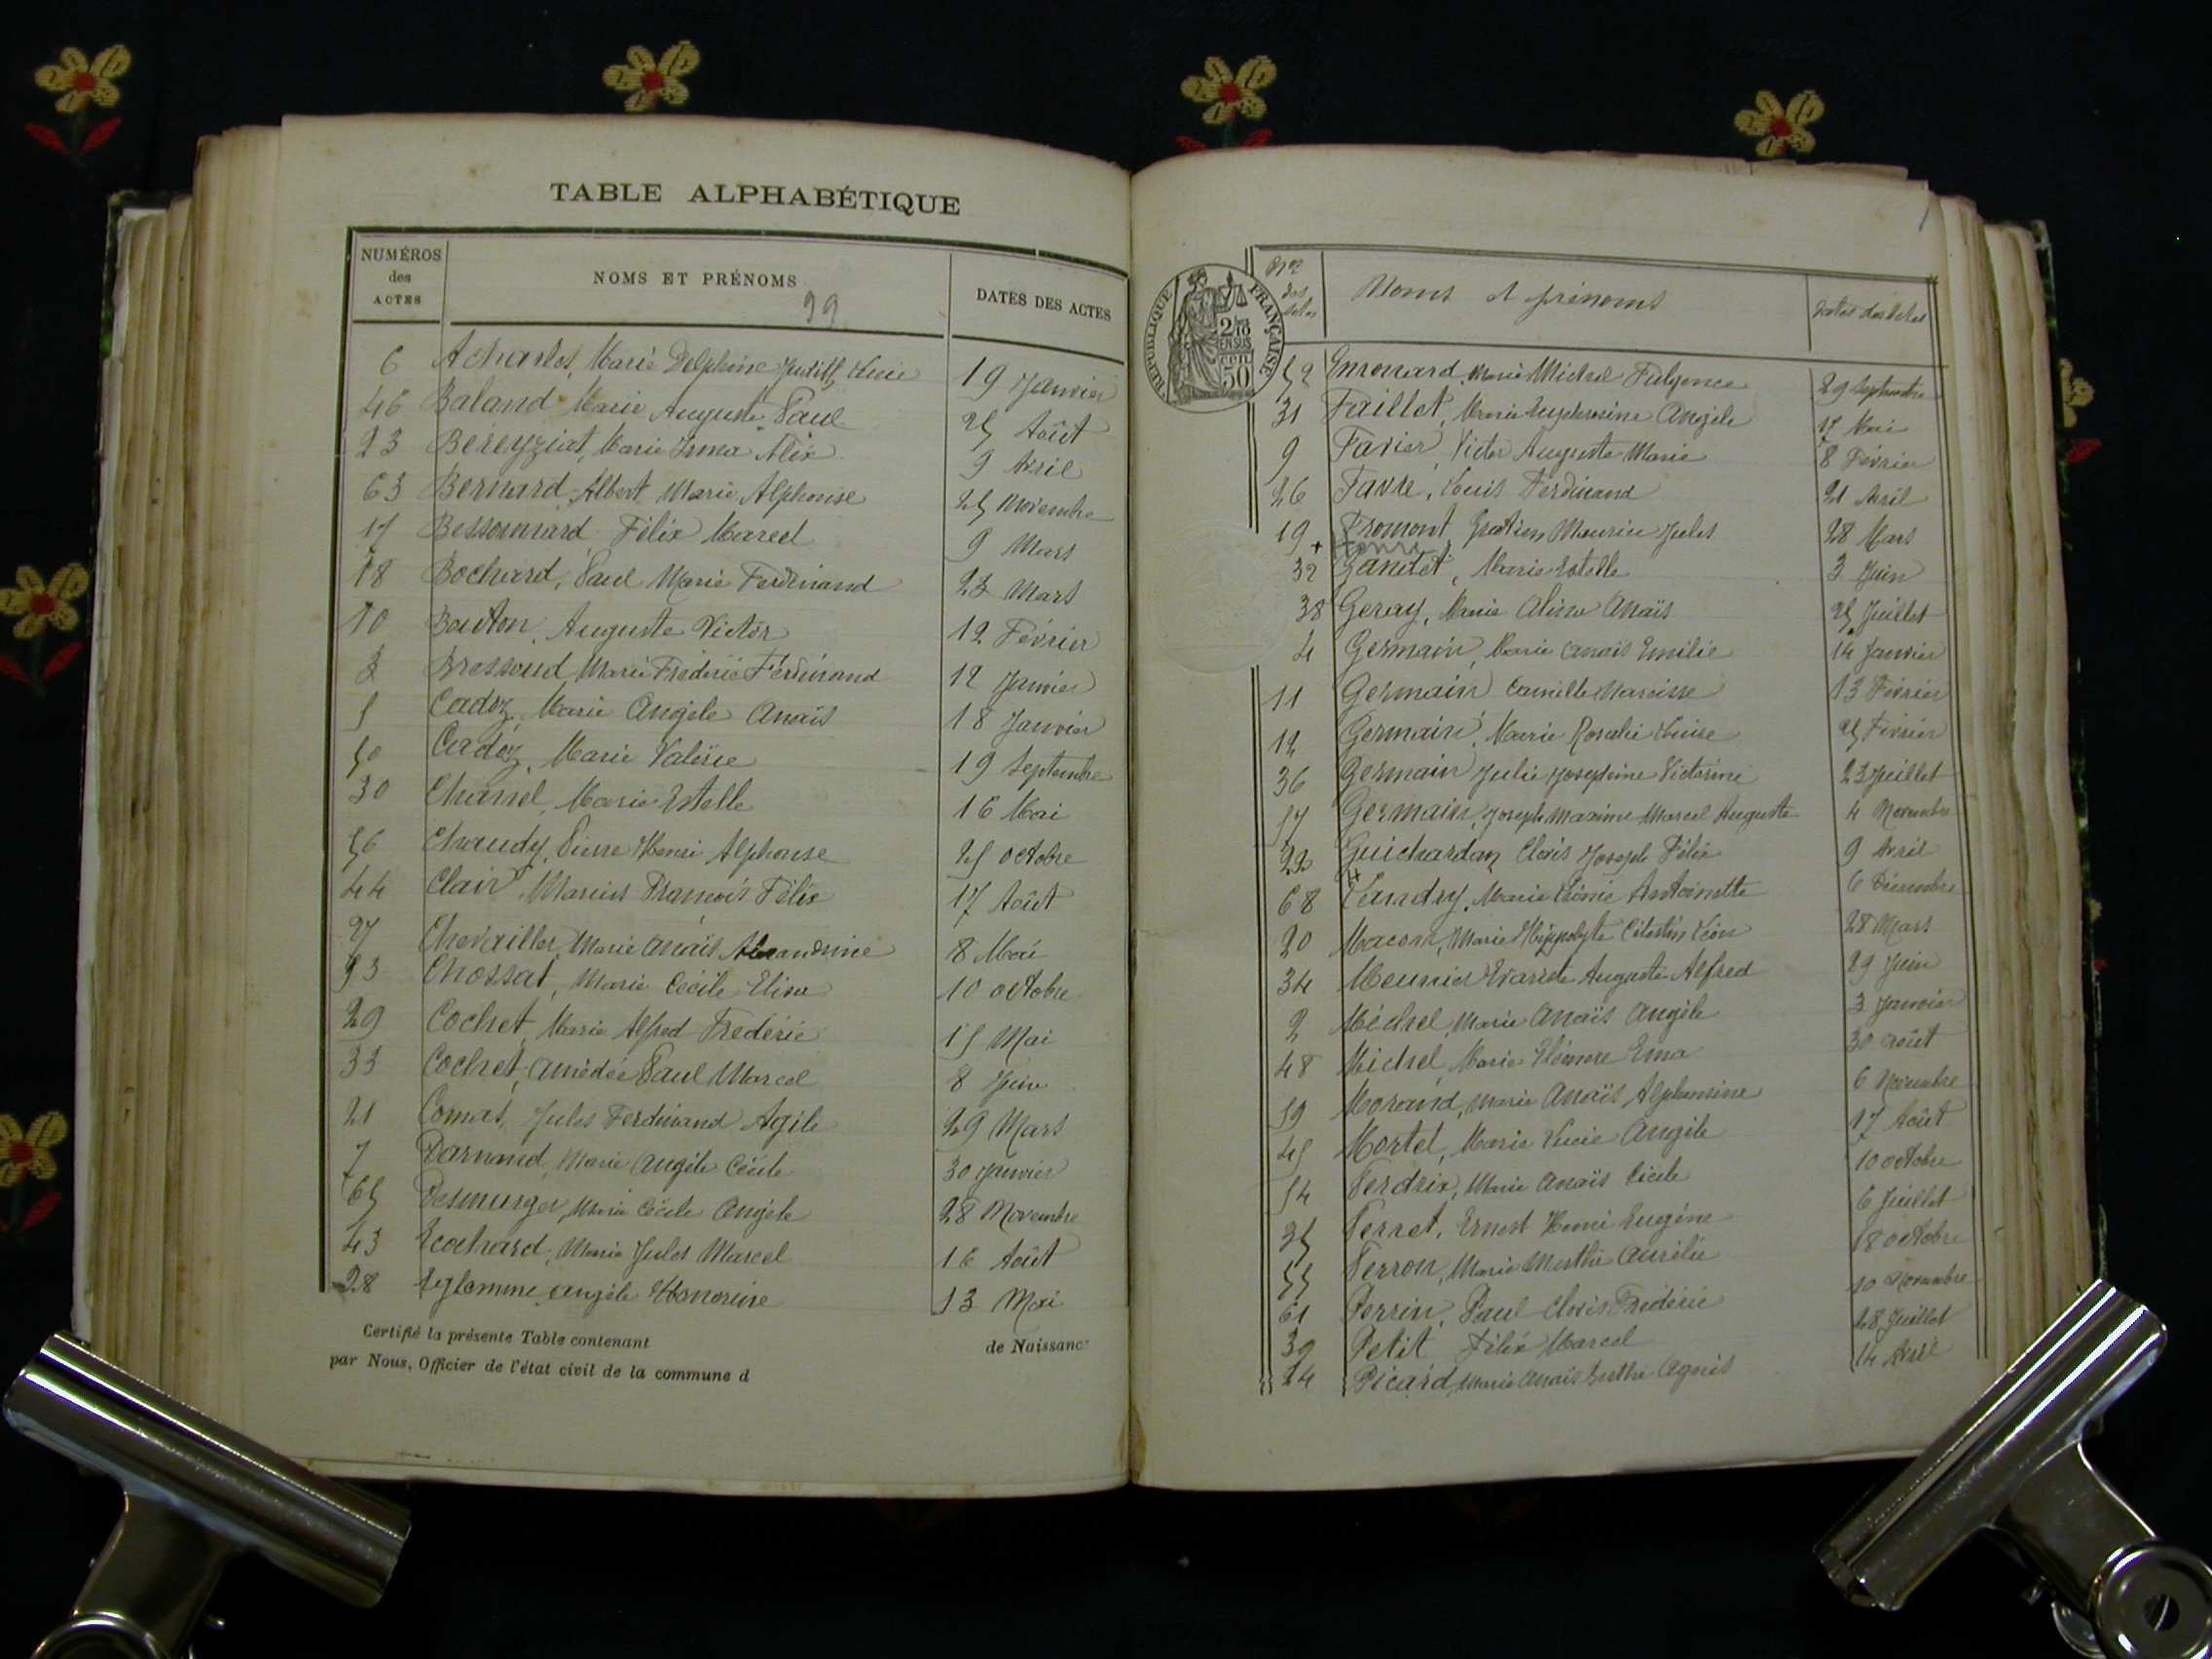 TABLE ALPHABÉTIQUE
NUMÉROS des ACTES NOMS ET PRÉNOMS DATES DES ACTES
99
6 Acharles, Marie Delphine Judith Lucie 19 Janvier
46 Baland Marie Auguste Paul 25 Août
23 Béreyziat, Marie Irma Alix 9 Avril
63 Bernard, Albert Marie Alphonse 25 Novembre
17 Bessonnard Félix Marcel 9 Mars
18 Bochard, Paul Marie Ferdinand 23 Mars
10 Bouton, Auguste Victor 12 Février
3 Bressoud Marie Frédéric Ferdinand 12 Janvier
5 Cadoz, Marie Angèle Anaïs 18 Janvier
50 Cadoz, Marie Valérie 19 Septembre
30 Chanel, Marie Estelle 16 Mai
56 Chaudy, Pierre Henri Alphonse 25 octobre
44 Clair, Marius François Félix 17 Août
27 Chevailler, Marie Anaïs Alexandrine 8 Mai
53 Chossat, Marie Cécile Elisa 10 octobre
29 Cochet, Marie Alfred Frédéric 15 Mai
33 Cochet, Amédée Paul Marcel 8 Juin
21 Comas, Jules Ferdinand Agile 29 Mars
7 Darnand, Marie Angèle Cécile 30 Janvier
65 Desmurger, Marie Cécile Angèle 28 Novembre
43 Ecochard, Marie Jules Marcel 16 Août
28 Eglemme Angèle Honorine 13 Mai
Certifié la présente Table contenant de Naissanc
par Nous, Officier de l'état civil de la commune d
RÉPUBLIQUE FRANÇAISE
2/10 EN SUS
50 cen
Nos des actes Noms et prénoms Dates des Actes
52 Emonard, Marie Michel Fulgence 29 Septembre
31 Faillet, Marie Euphrosine Angèle 17 Mai
9 Favier, Victor Auguste Marie 8 Février
26 Favre, Louis Ferdinand 21 Avril
19 Fromont, Gratien Maurice Jules 28 Mars
32 Gandet, Marie Estelle 3 Juin
38 Geray, Marie Aline Anaïs 25 Juillet
4 Germain, Marie Anaïs Emilie 14 Janvier
11 Germain Camille Narcisse 13 Février
12 Germain, Marie Rosalie Louise 25 Février
36 Germain Julie Joséphine Victorine 23 Juillet
57 Germain, Joseph Maxime Marcel Auguste 4 Novembre
22 Guichardan Clovis Joseph Félix 9 Avril
68 Landry, Marie Léonie Antoinette 6 Décembre
20 Macon, Marie Hippolyte Célestin Léon 28 Mars
34 Meunier Evariste Auguste Alfred 29 Juin
2 Michel, Marie Anaïs Angèle 3 Janvier
48 Michel, Marie Eléonore Ema 30 août
59 Morand, Marie Anaïs Alphonsine 6 Novembre
45 Mortel, Marie Lucie Angèle 17 Août
54 Perdrix, Marie Anaïs Cécile 10 octobre
35 Perret, Ernest Henri Eugène 6 Juillet
55 Perron, Marie Marthe Aurélie 18 octobre
61 Perrin, Paul Clovis Frédéric 10 Novembre
39 Petit Félix Marcel 28 Juillet
24 Picard, Marie Anaïs Berthe Agnès 14 Avril